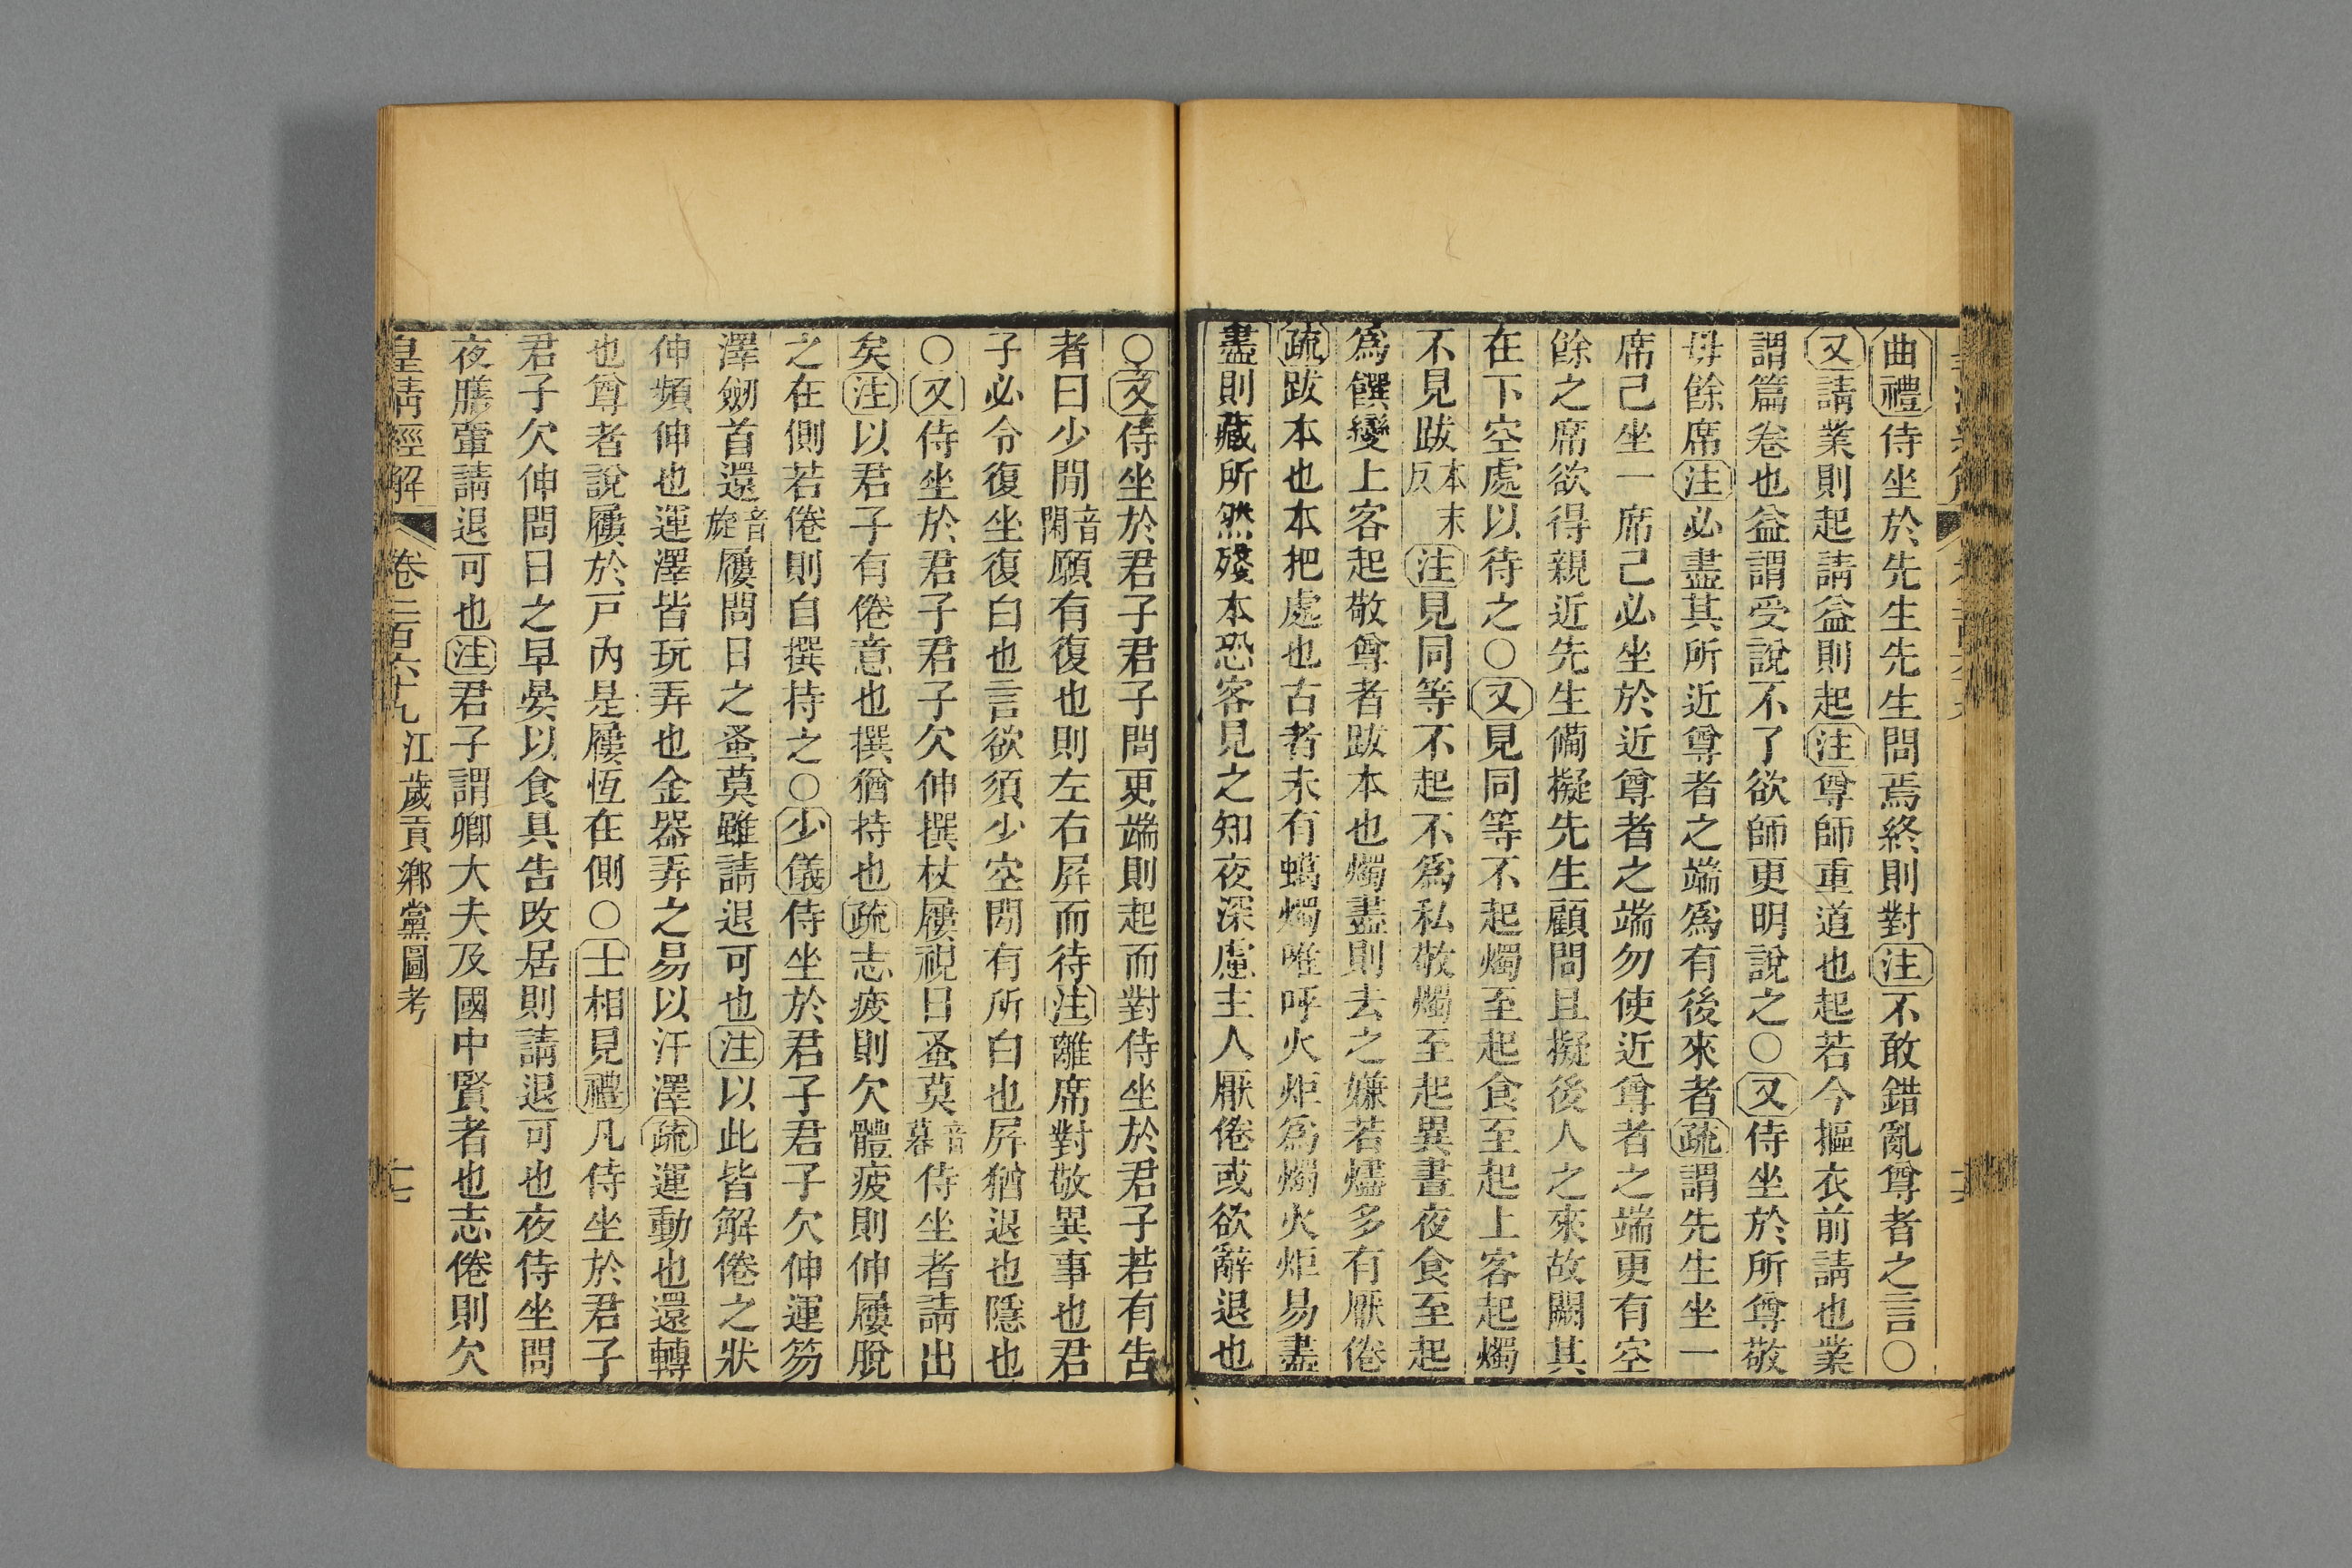 曲禮侍坐於先生先生問焉終則對注不敢錯亂尊者之言○
又請業則起請益則起注尊師重道也起若今摳衣前請也業
謂篇卷也益謂受說不了欲師更明說之○又侍坐於所尊敬
毋餘席注必盡其所近尊者之端爲有後來者疏謂先生坐一
席己坐一席己必坐於近尊者之端勿使近尊者之端更有空
餘之席欲得親近先生備擬先生顧問且擬後人之來故闕其
在下空處以待之○又見同等不起燭至起食至起上客起燭
不見跋本末反注見同等不起不爲私敬燭至起異晝夜食至起
爲饌變上客起敬尊者跋本也燭盡則去之嫌若燼多有厭倦
疏跋本也本把處也古者未有蠟燭唯呼火炬爲燭火炬易盡
盡則藏所然殘本恐客見之知夜深慮主人厭倦或欲辭退也
○又侍坐於君子君子問更端則起而對侍坐於君子若有告
者曰少閒音閑願有復也則左右屏而待注離席對敬異事也君
子必令復坐復白也言欲須少空閒有所白也屏猶退也隱也
○又侍坐於君子君子欠伸撰杖屨視日蚤莫音暮侍坐者請出
矣注以君子有倦意也撰猶持也疏志疲則欠體疲則伸屨脫
之在側若倦則自撰持之○少儀侍坐於君子君子欠伸運笏
澤劒首還音旋屨問日之蚤莫雖請退可也注以此皆解倦之狀
伸頻伸也運澤皆玩弄也金器弄之易以汗澤疏運動也還轉
也尊者說屨於戸內是屨恆在側○士相見禮凡侍坐於君子
君子欠伸問日之早晏以食具告改居則請退可也夜侍坐問
夜膳葷請退可也注君子謂卿大夫及國中賢者也志倦則欠
皇清經解 卷二百六十九 江歲貢鄉黨圖考 十七